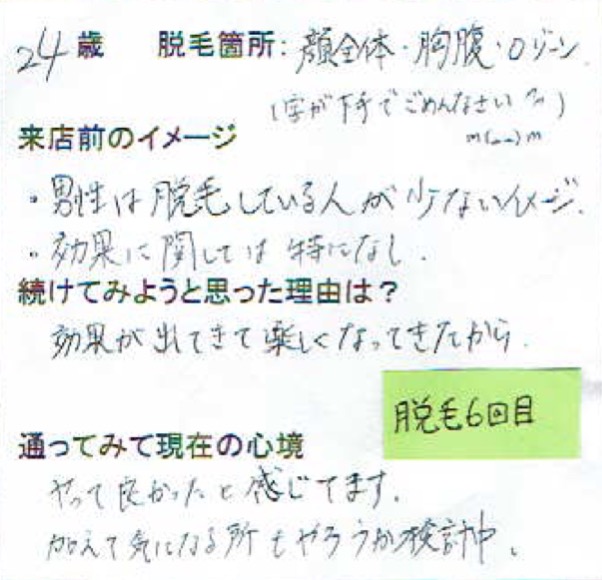 24歳 脱毛箇所: 顔全体・胸腹・Oゾーン
(字が下手でごめんなさい
m(__)m
来店前のイメージ
・男性は脱毛している人が少ないイメージ.
・効果に関しては特になし.
続けてみようと思った理由は?
効果が出てきて楽しくなってきたから.
脱毛6回目
通ってみて現在の心境
やって良かったと感じてます.
加えて気になる所もやろうか検討中.